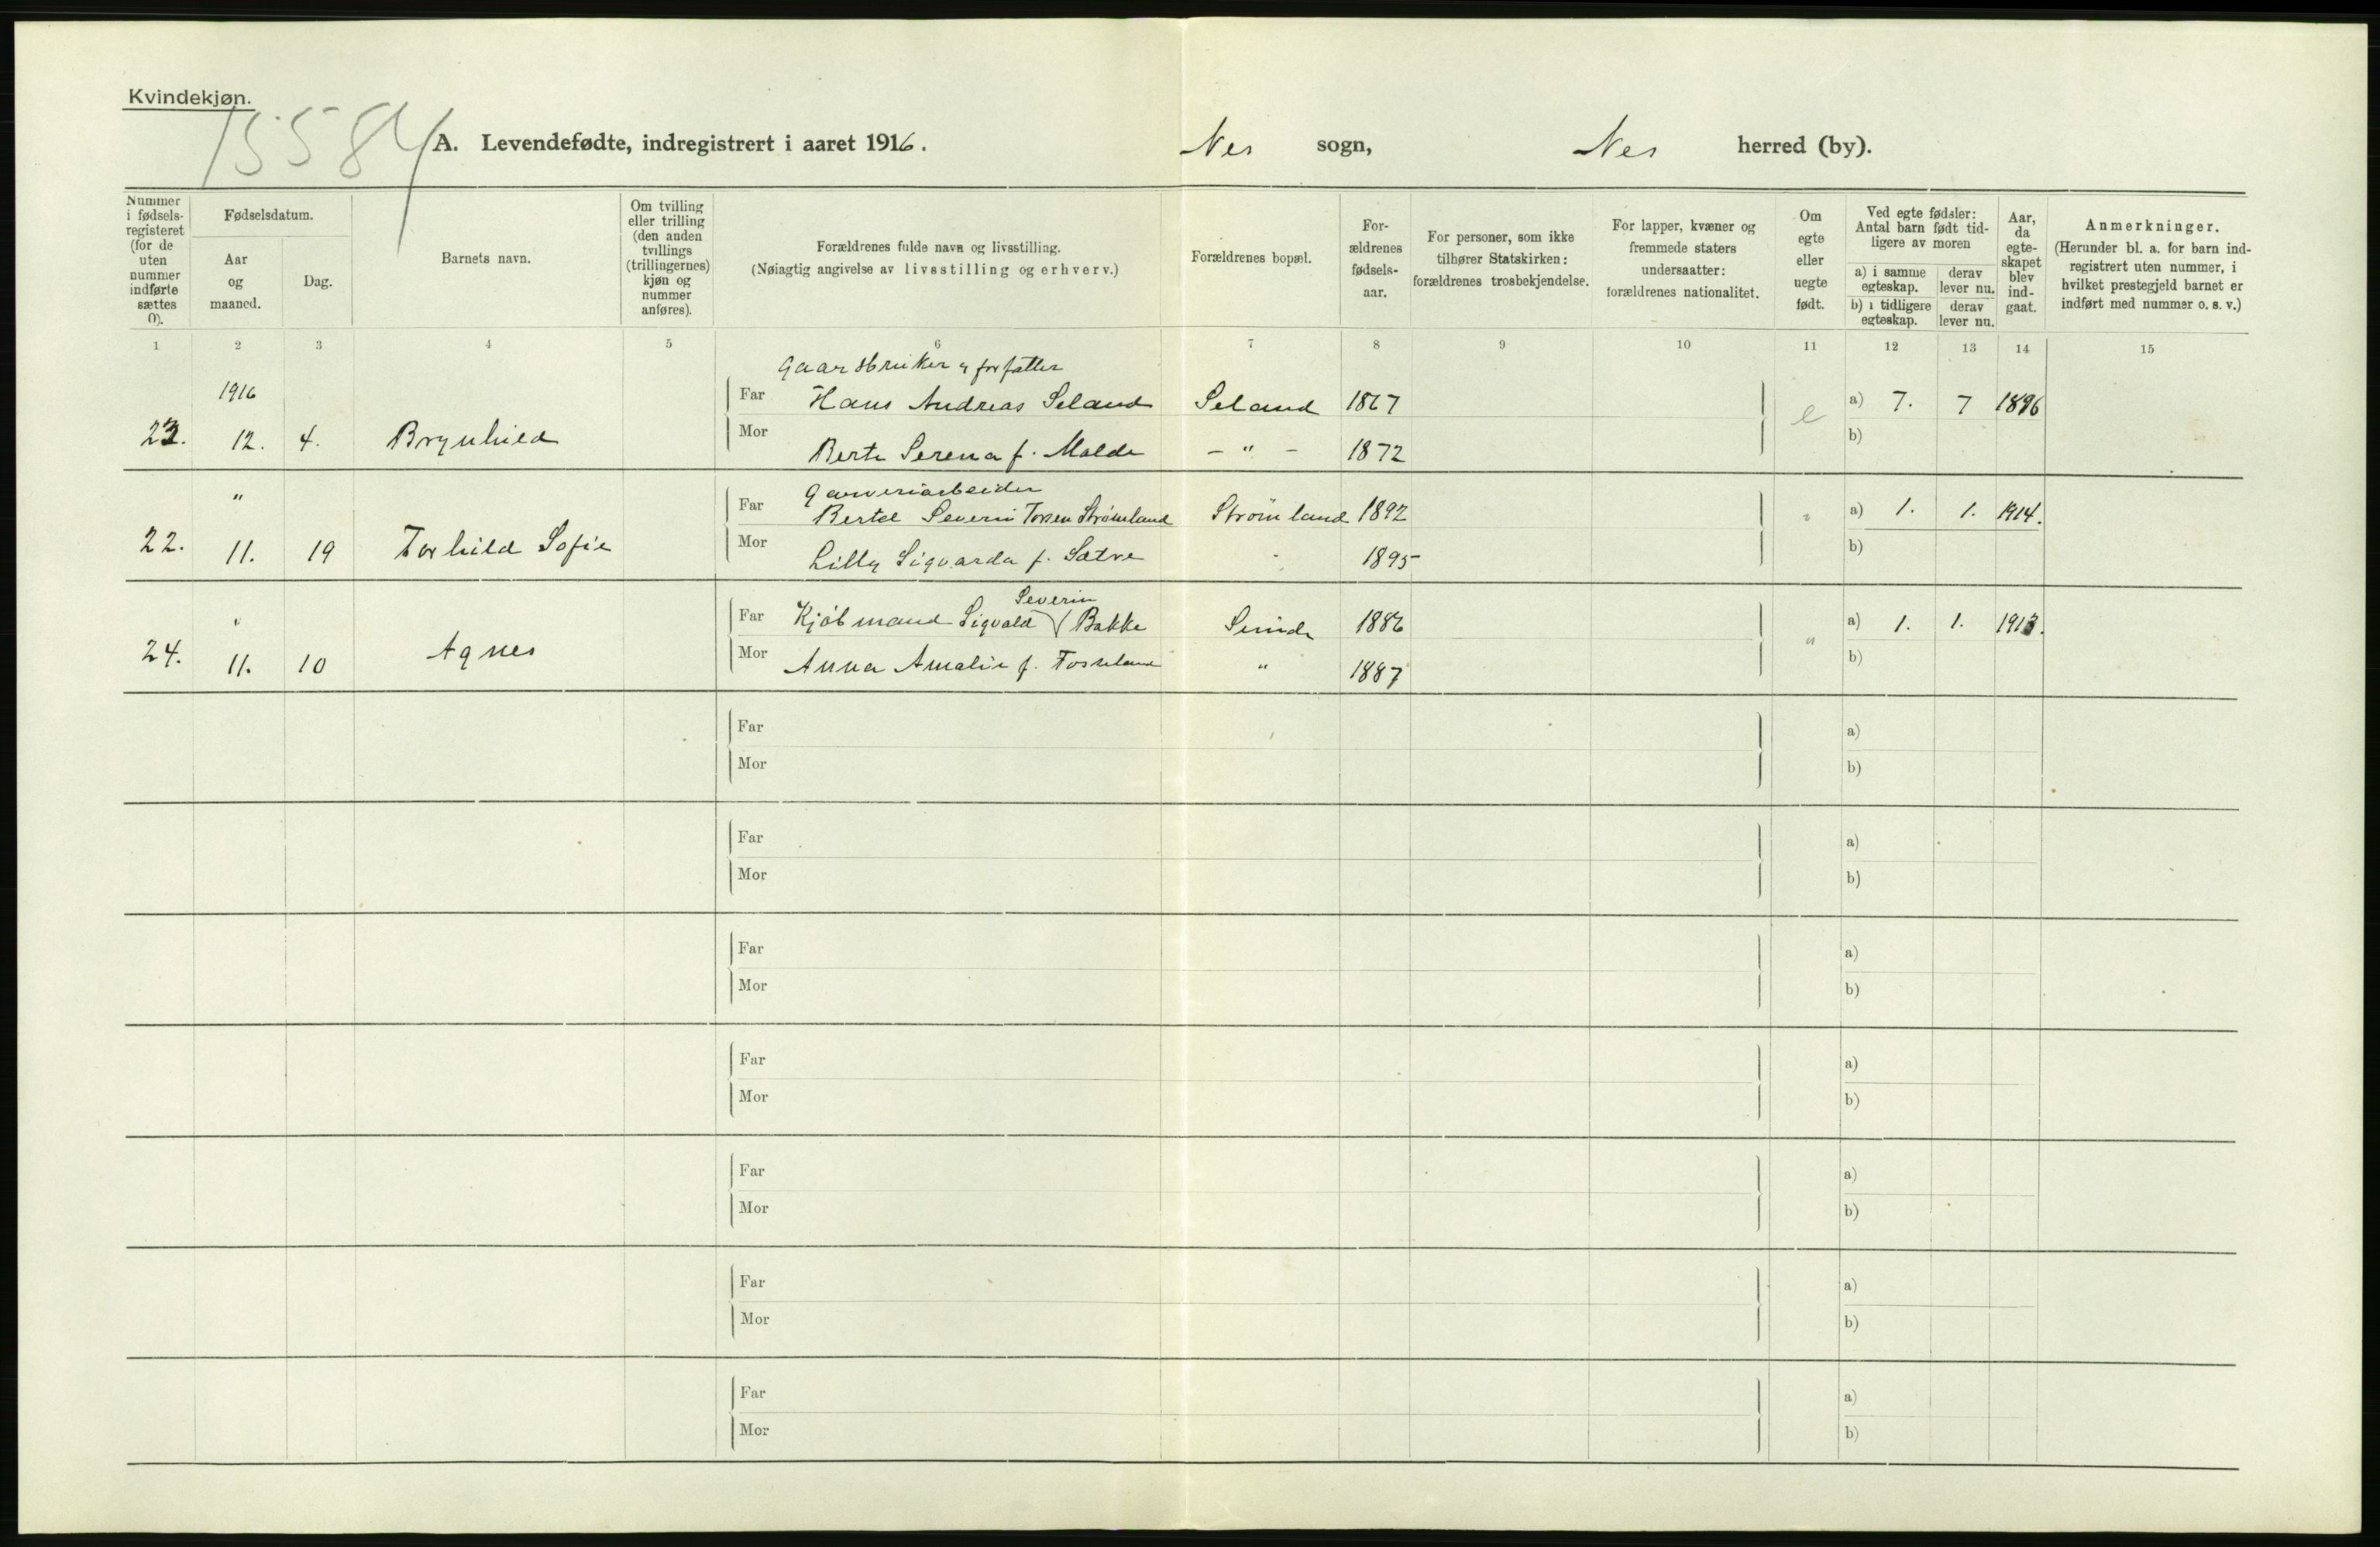 Kvindekjøn.
15584
A. Levendefødte, indregistrert i aaret 1916. Nes sogn, Nes herred (by).
Nummer i fødsels-registeret (for de uten nummer indførte sættes 0).
Fødselsdatum.
Aar og maaned.
Dag.
Barnets navn.
Om tvilling eller trilling (den anden tvillings (trillingernes) kjøn og nummer anføres).
Forældrenes fulde navn og livsstilling.
(Nøiagtig angivelse av livsstilling og erhverv.)
Forældrenes bopæl.
For-ældrenes fødsels-aar.
For personer, som ikke tilhører Statskirken: forældrenes trosbekjendelse.
For lapper, kvæner og fremmede staters undersaatter: forældrenes nationalitet.
Om egte eller uegte født.
Ved egte fødsler: Antal barn født tid-ligere av moren
a) i samme egteskap.
derav lever nu.
b) i tidligere egteskap.
derav lever nu.
Aar, da egte-skapet blev ind-gaat.
Anmerkninger.
(Herunder bl. a. for barn ind-registrert uten nummer, i hvilket prestegjeld barnet er indført med nummer o. s. v.)
1 2 3 4 5 6 7 8 9 10 11 12 13 14 15
Gaardbruker & forfatter
1916 Far Hans Andreas Seland Seland 1867 e a) 7. 7 1896
23. 12. 4. Brynhild Mor Berte Serena f. Molde - " - 1872 b)
Garveriarbeider
" Far Bertel Severin Torsen Strømland Strømland 1892 " a) 1. 1. 1914.
22. 11. 19 Torhild Sofie Mor Lilly Sigvarda f. Sætre 1895 b)
Severin
" Far Kjøbmand Sigvald Bakke 1886 " a) 1. 1. 1913.
24. 11. 10 Agnes Mor Anna Amalie f. " 1887 b)
Far a)
Mor b)
Far a)
Mor b)
Far a)
Mor b)
Far a)
Mor b)
Far a)
Mor b)
Far a)
Mor b)
Far a)
Mor b)